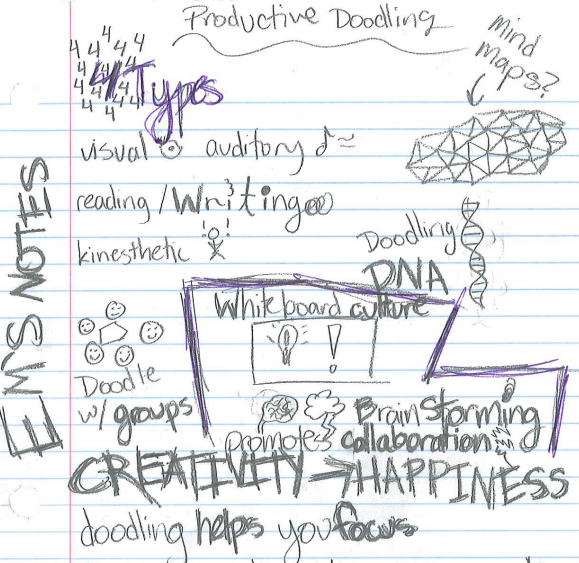 Productive Doodling
mind
maps?
4 4 4 4 4 4 4 4 4 4 4 4 4
4 Types
visual auditory
reading/Writing
kinesthetic
Doodling
DNA
EM'S NOTES
Whiteboard culture
!
Doodle
w/ groups
Brainstorming
promotes collaboration
CREATIVITY → HAPPINESS
doodling helps you focus